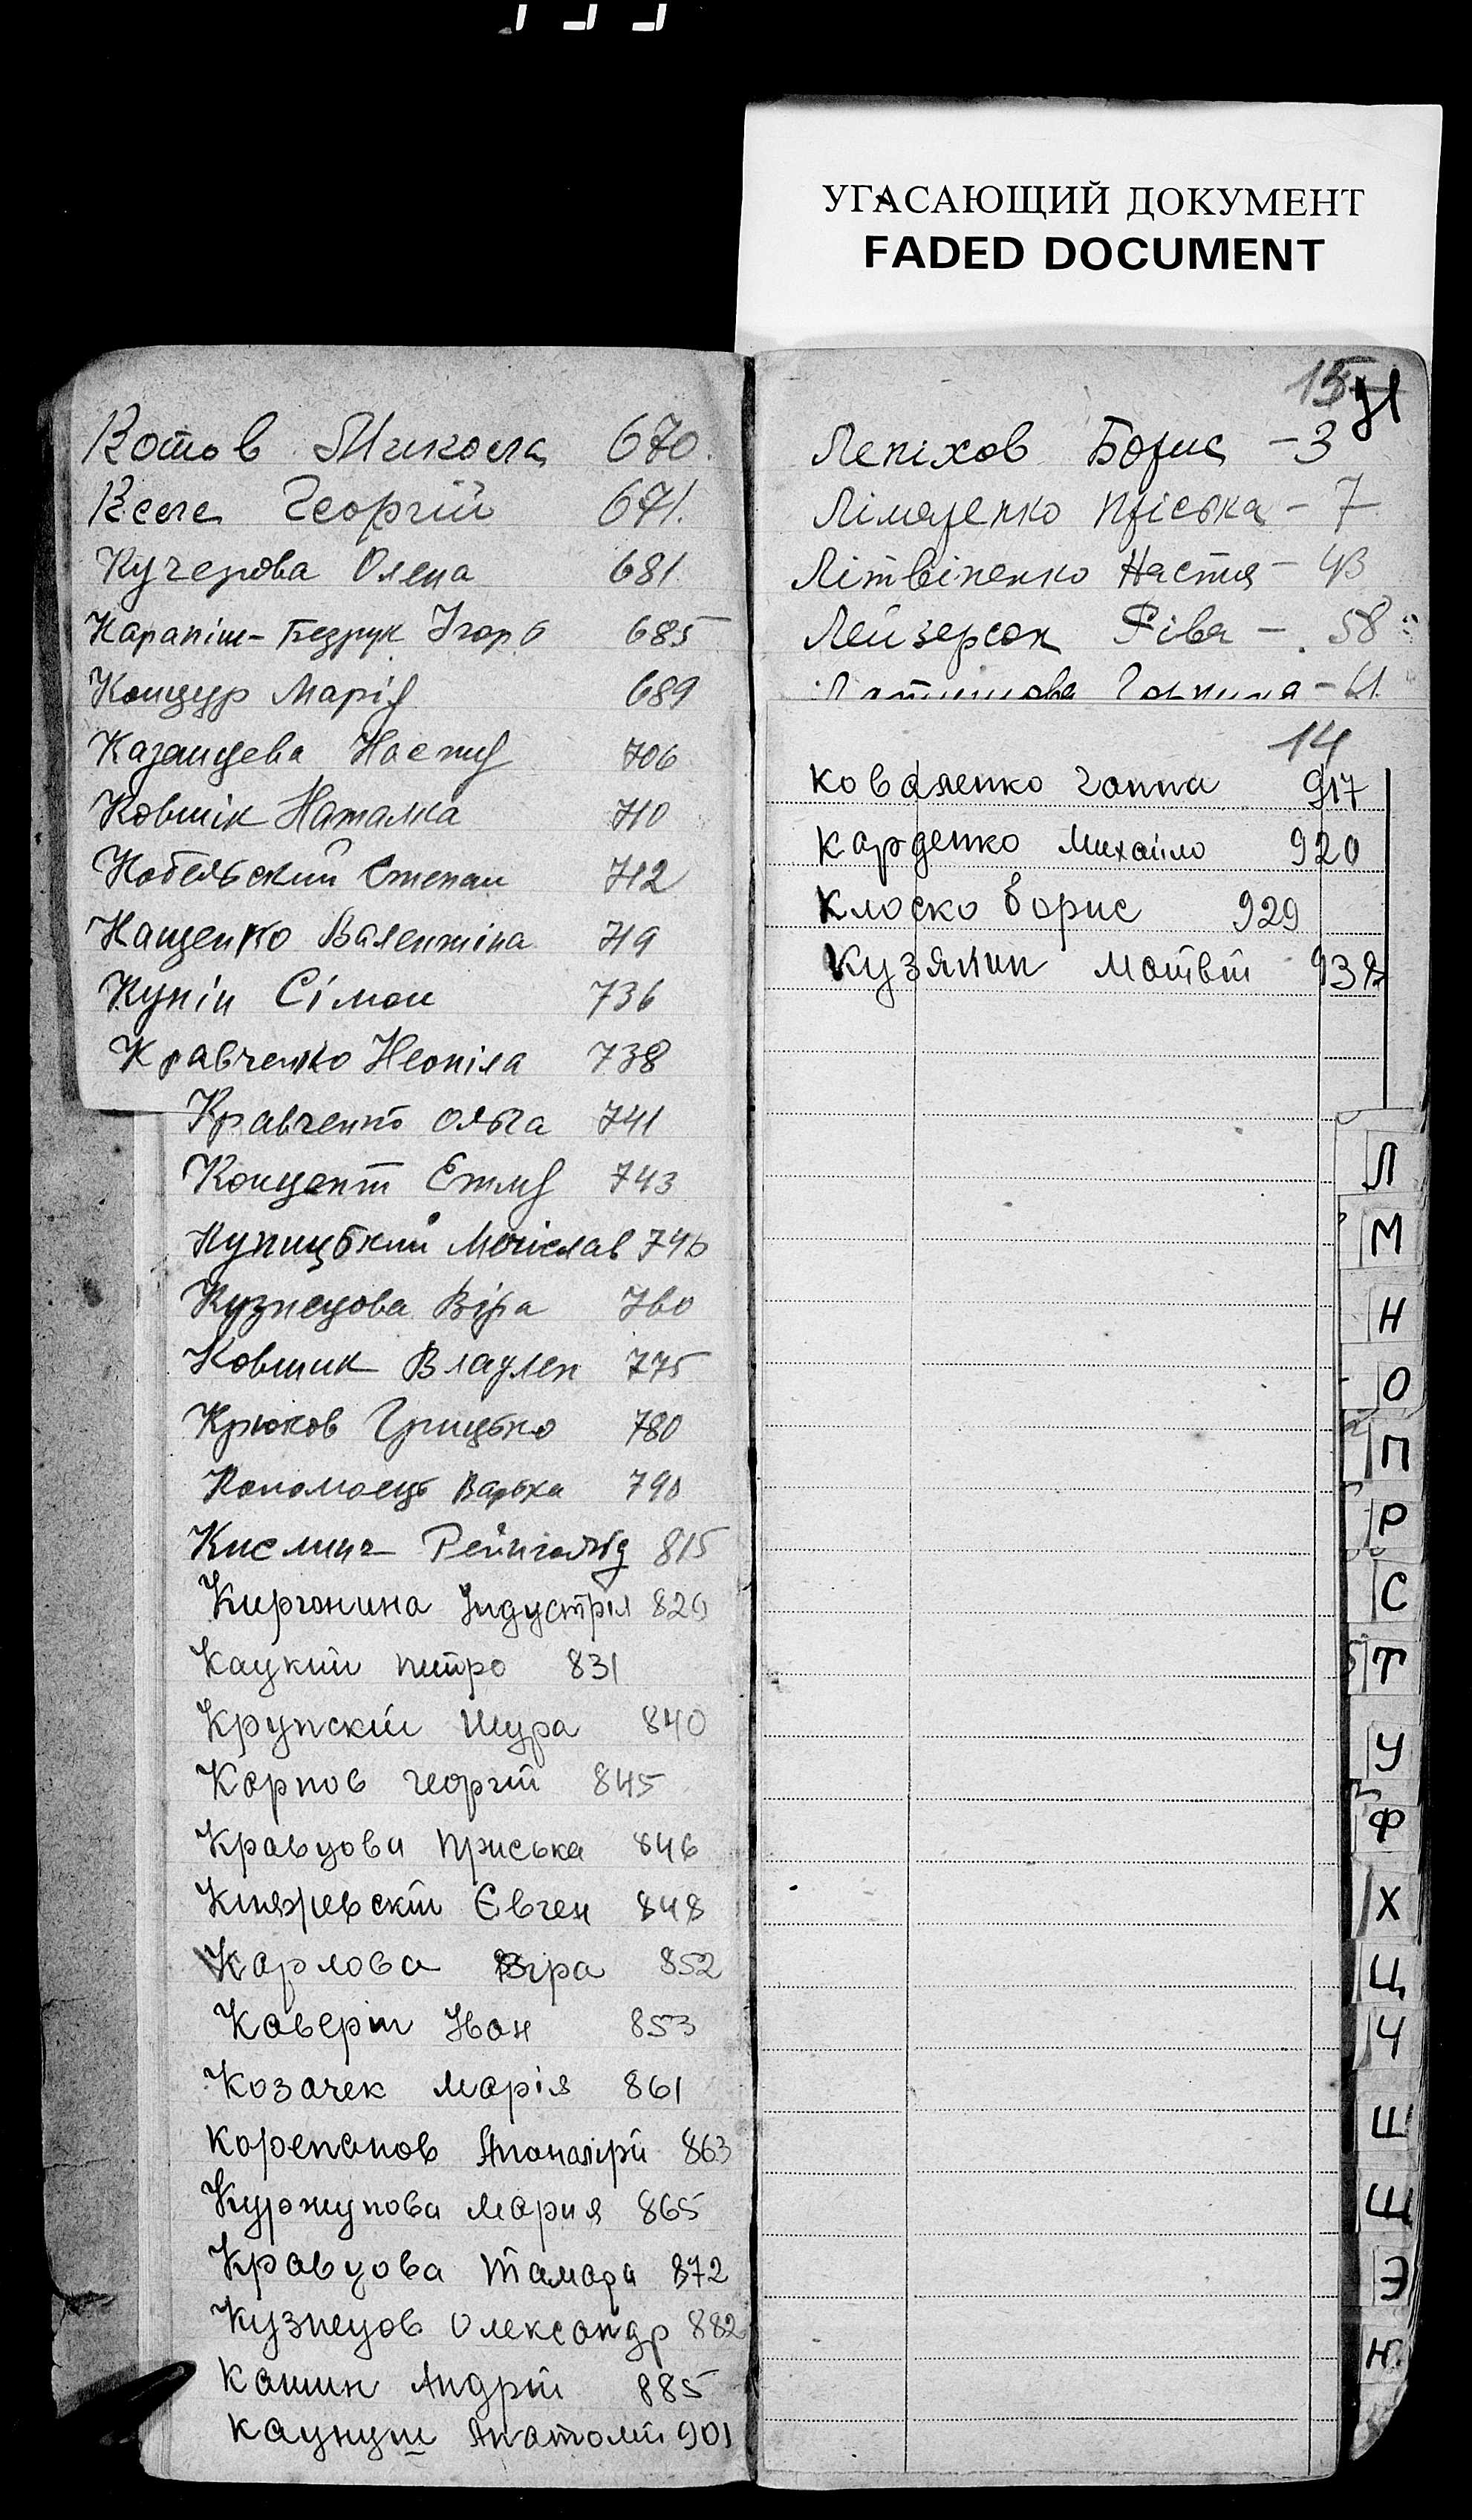 УГАСАЮЩИЙ ДОКУМЕНТ
FADED DOCUMENT
Котов Микола 670.
Георгій 671.
Кучерова Олена 681
Карапіш-Безрук Ігорь 685
Концур Марія 689
Казанцева Настя 706
Ковшік Наталка 710
Кобельский Степан 712
Кащенко Валентіна 719
Кунін Сімон 736
Кравченко Неоніла 738
Кравченко Ольга 741
Концепт 743
Куницький 746
Кузнецова Віра 760
Ковшик Владлен 775
Крюков Грицько 780
Коломоець Варька 790
Кислинг Рейнгольд 815
Киргонина Індустрія 820
Кацкий Питро 831
Крупскій Шура 840
Карпов Георгій 845
Кравцова Приська 846
Княжевскій Євген 848
Карлова Віра 852
Каверін Іван 853
Козачек Марія 861
Корепанов 863
Куржупова Мария 865
Кравцова Тамара 872
Кузнецов Олександр 882
Кашин Андрій 885
Каунуш Анатолій 901
15 Л
Лепіхов Борис - 3
Лімаренко Пріська - 7
Літвіненко Настя - 43
Лейзерсон Ріва - 58
- 61
14
Коваленко Ганна 917
Карденко Михайло 920
Клоско Борис 929
Кузякин Матвій 932
Л
М
Н
О
П
Р
С
Т
У
Ф
Х
Ц
Ч
Ш
Щ
Э